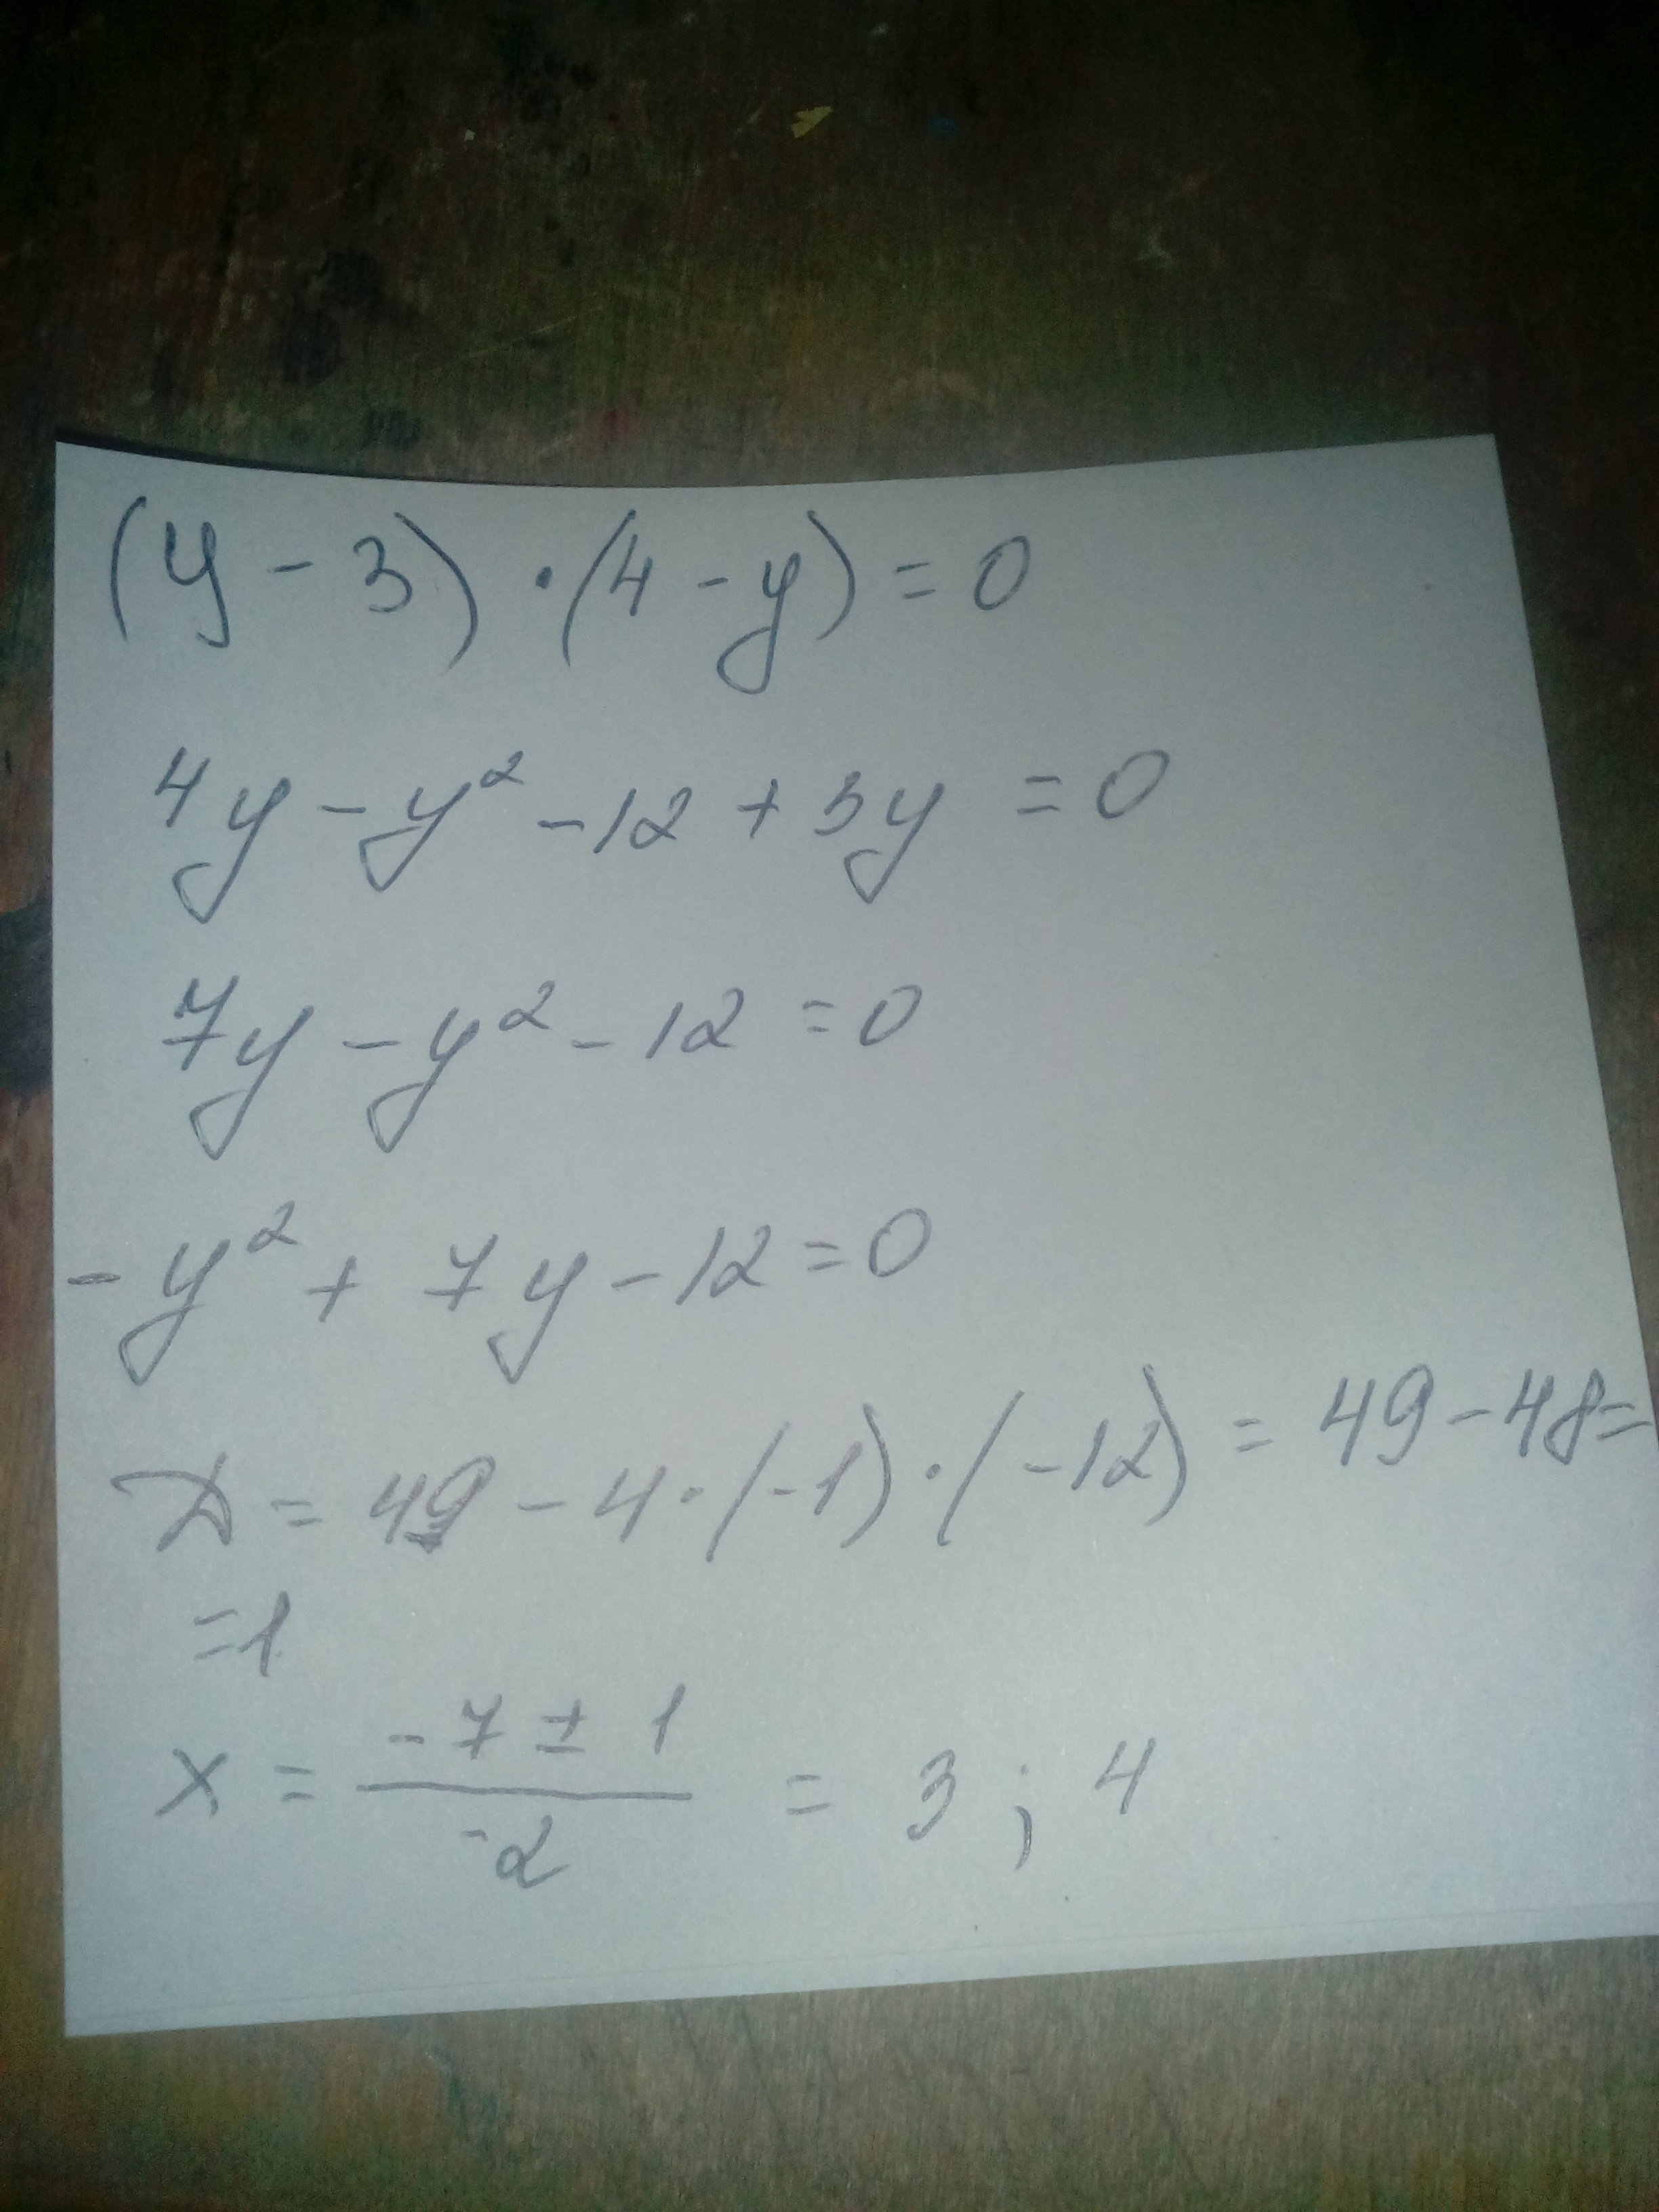 (y - 3) · (4 - y) = 0
4y - y² - 12 + 3y = 0
7y - y² - 12 = 0
- y² + 7y - 12 = 0
D = 49 - 4 · (-1) · (-12) = 49 - 48 =
= 1
x = (-7 ± 1) / -2 = 3 ; 4